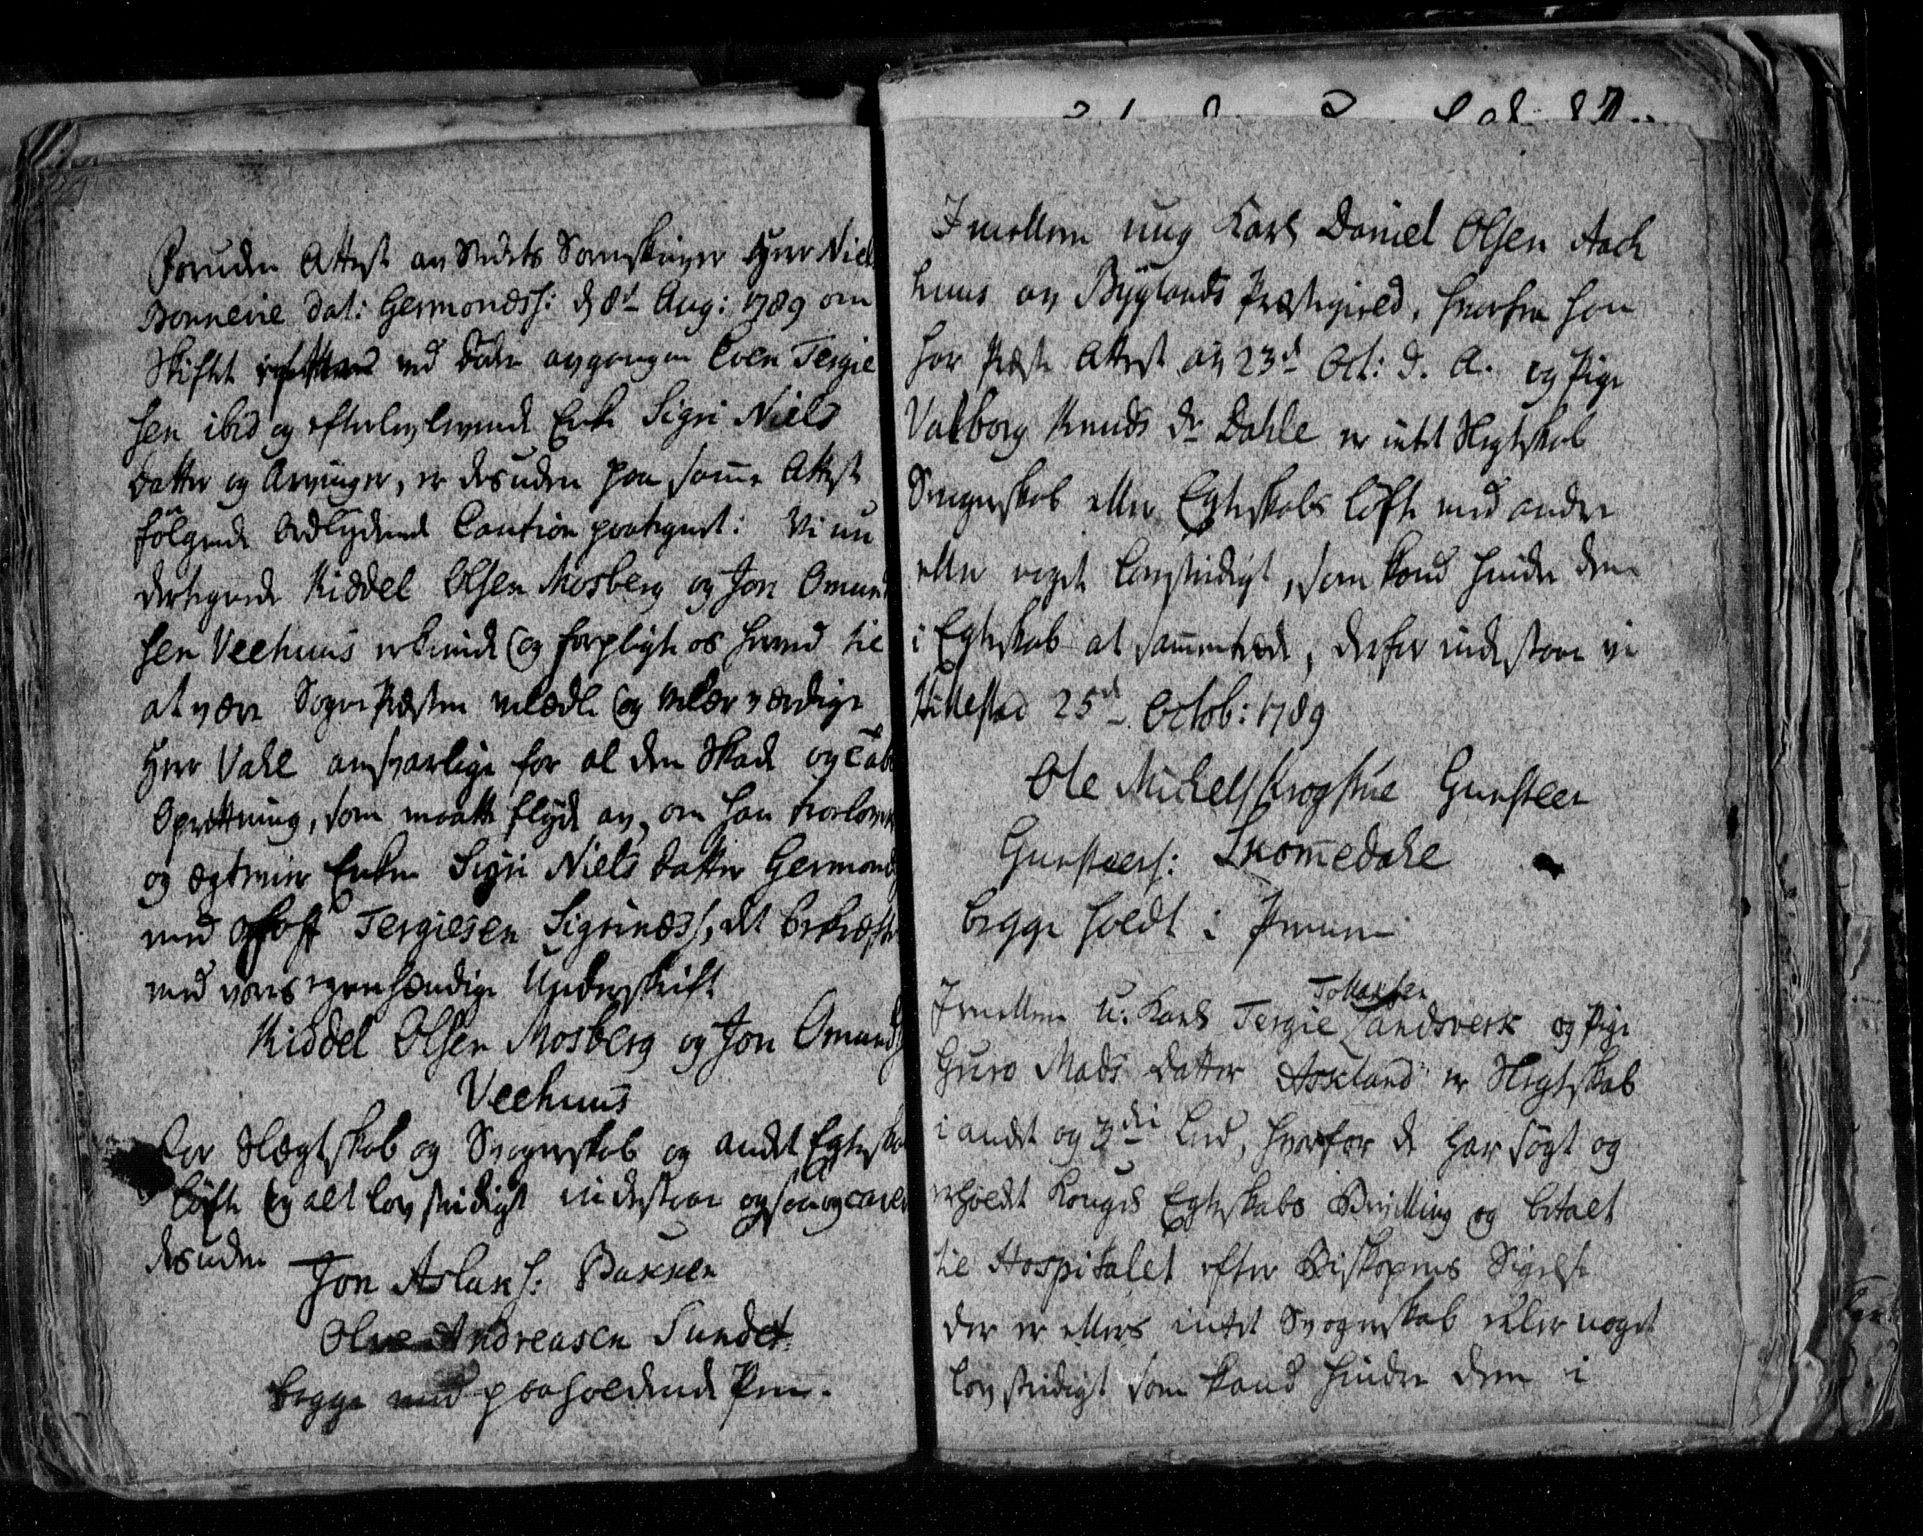 Foruden Attest av Stedets Sorenskriver Herr Niels
Bonnevie dat: Germondss: d 8d Aug: 1789 om
Skiftet ved Døden avgangen Even Tergie
sen ibid og efterlevlevende Enke Sigri Niels
datter og Arvinger, er desuden paa samme Attest
følgende Ordlydende Caution paategnet: Vi un
dertegnede Kiddel Olsen Mosberg og Jon Omund
sen Veehuus erkiende og forpligte os herved til
at være Sogne Præsten velædle og velærværdige
Herr Vahl ansvarlige for al den Skade og Tabs
Oprettning, som maatte flyde av, om han trolover
og ægtvier Enken Sigri Niels datter Germonds
med Tergiesen Sigrinæss, det bekræfte
med vores egenhændige Underskrift
Kiddel Olsen Mosberg og Jon Omunds
Veehuus
For Slægtskab og Svogerskab og andet Egteskab
løfte og alt lovstridigt indestaae ogsaa og
desuden
Jon Aslaks: Bakken
Olve Andreasen Sundet
begge med paaholdende Pen.
Imellem ung Karl Daniel Olsen Aack
huus av Byglands Præstegield, hvorfra han
har Præste Attest av 23d Oct: d. A. og Pige
Valborg Knuds dr Dahle er intet Slegtskab
Svogerskab eller Egteskabs løfte med andre
eller noget lovstridigt, som kand hindre dem
i Egteskab at sammentrede, derfor indestaae vi
Hillestad 25d Octob: 1789
Ole Michels Kroghue Gunsteen
Gunsteens: Skomedahl
begge holdt i Pennen
Imellem u: Karl Tergie Tollaksen Landsverk og Pige
Guro Mads datter Askland er Slegtskab
i andet og 3die Led, hvorfor de har søgt og
erholdt Konges Egteskabs Bevilling og betalt
til Hospitalet efter Biskopens Sigelse
der er ellers intet Svogerskab eller noget
lovstridigt som kand hindre dem i